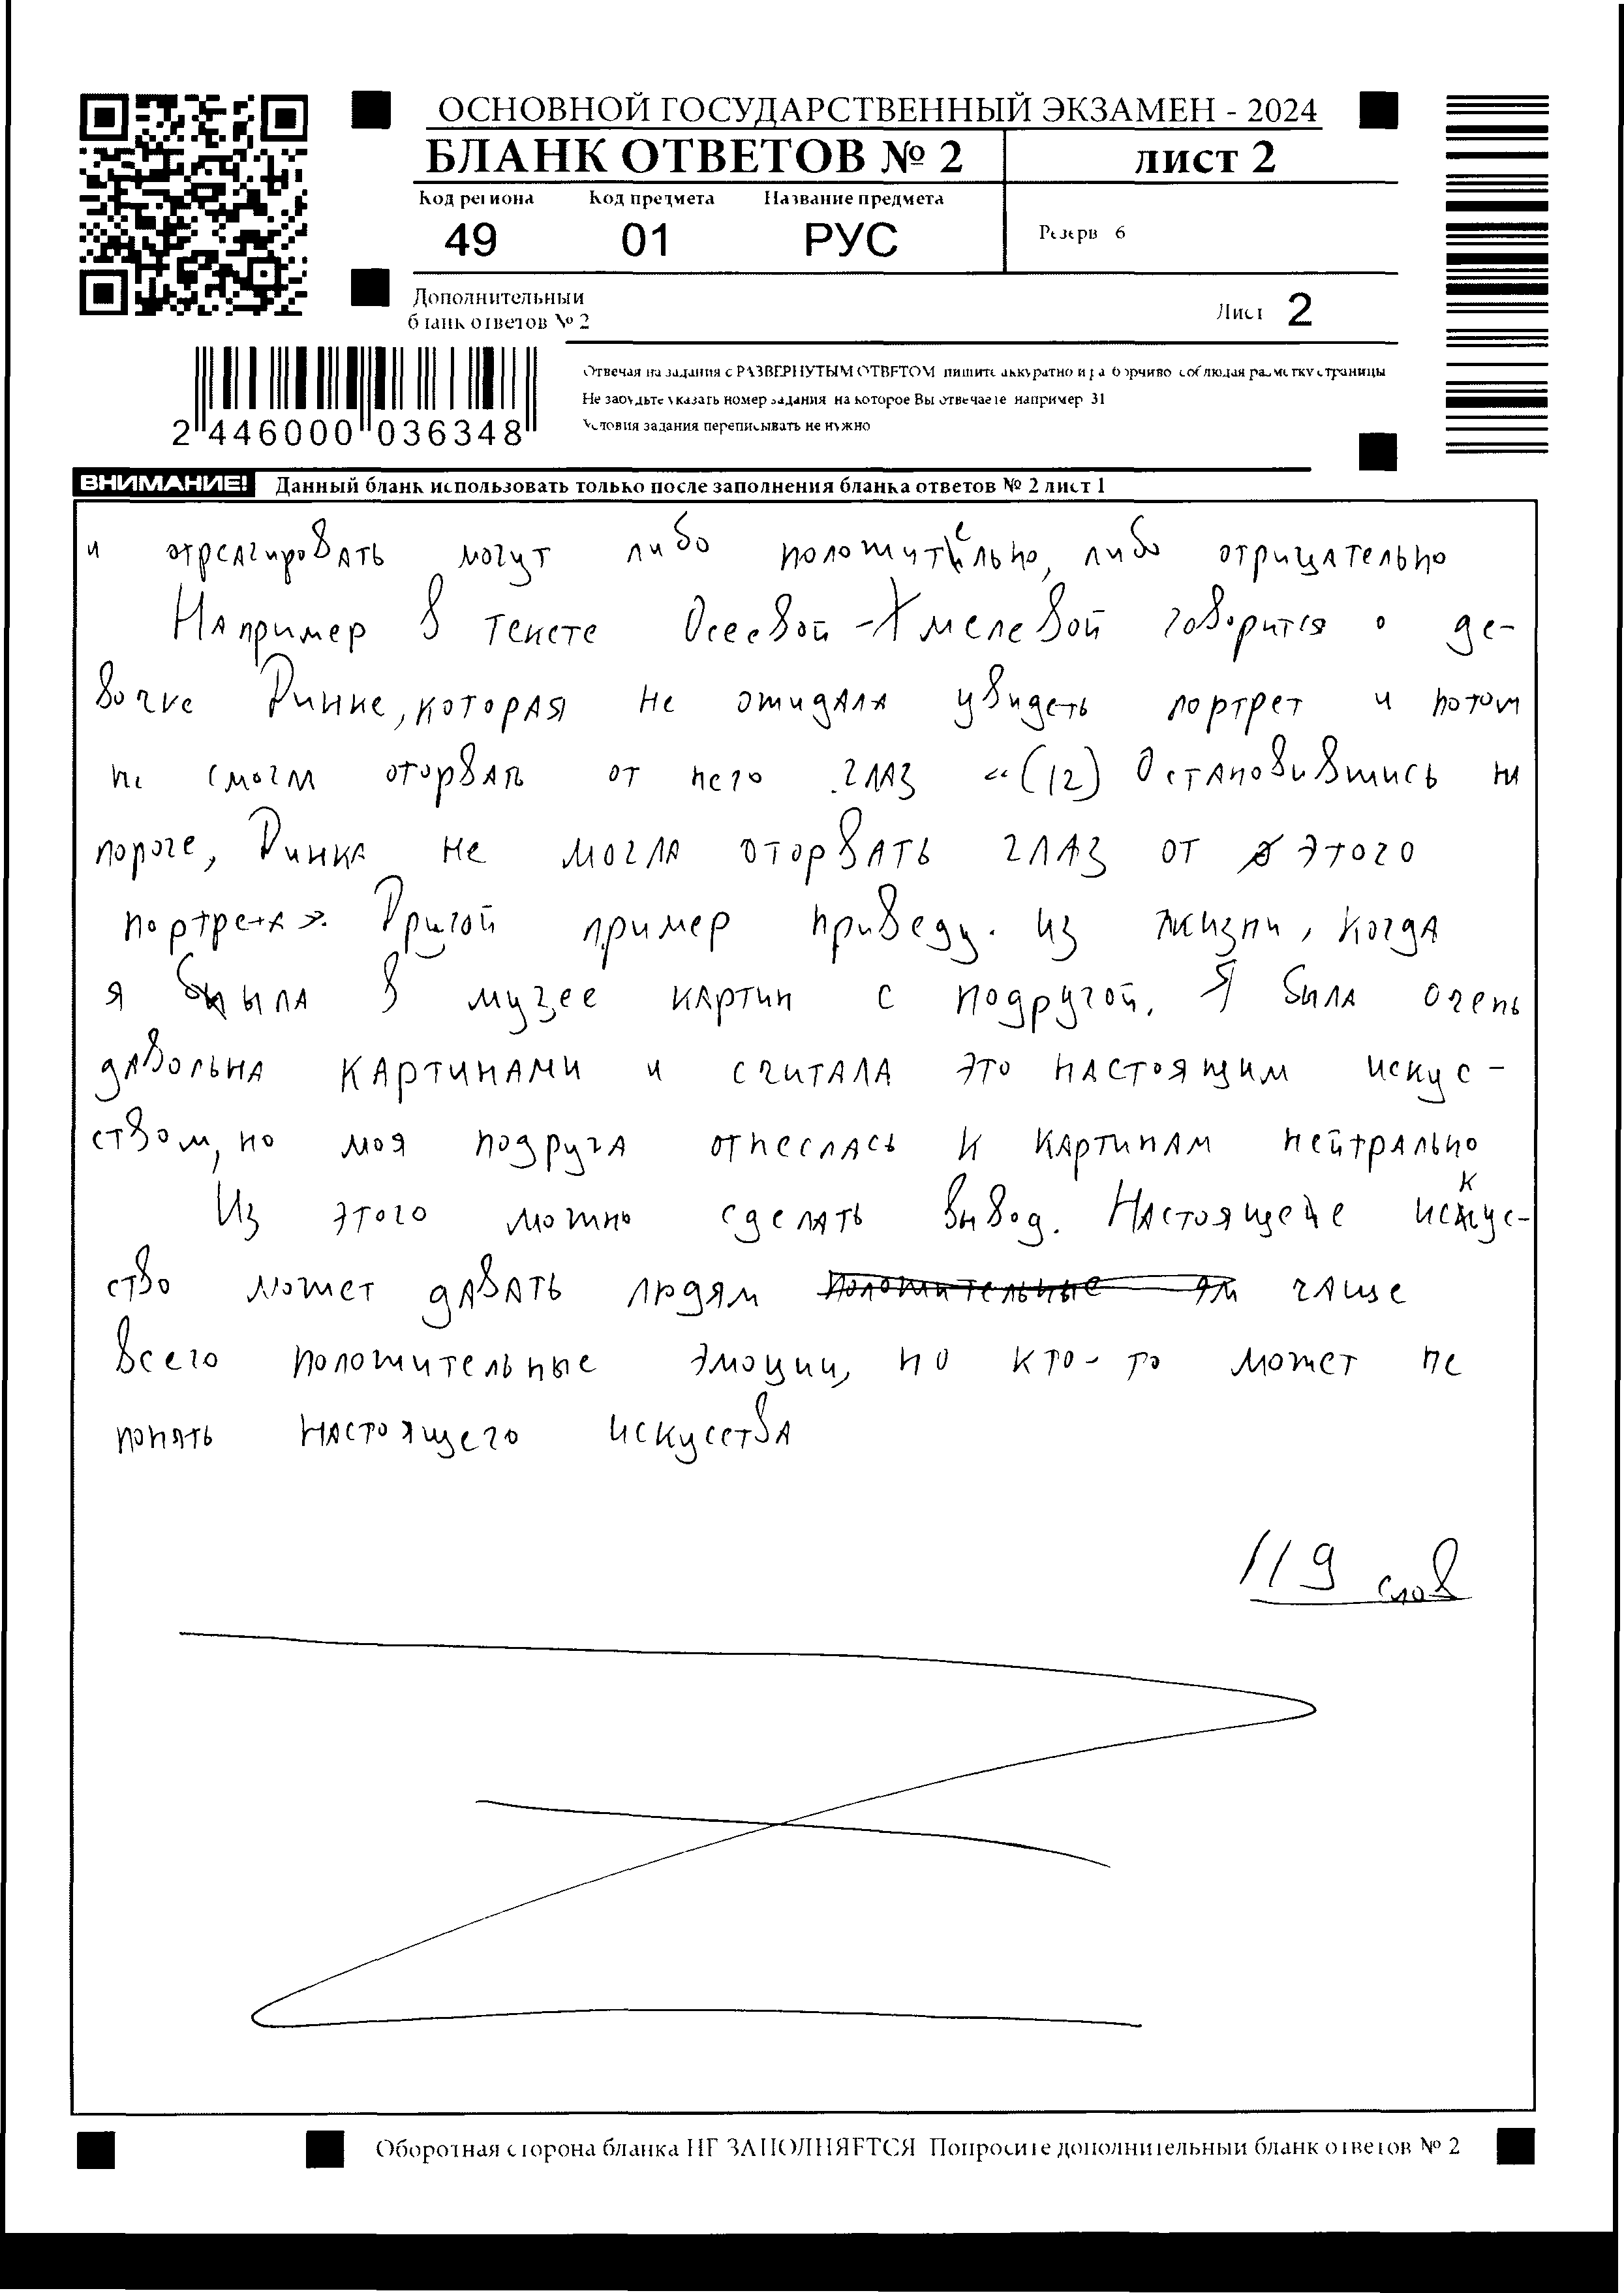 ОСНОВНОЙ ГОСУДАРСТВЕННЫЙ ЭКЗАМЕН - 2024
БЛАНК ОТВЕТОВ № 2
лист 2
Код региона Код предмета Название предмета
49 01 РУС
Резерв 6
Дополнительный
бланк ответов № 2
Лист 2
Отвечая на задания с РАЗВЕРНУТЫМ ОТВЕТОМ пишите аккуратно и разборчиво соблюдая разметку страницы
Не забудьте указать номер задания на которое Вы отвечаете например 31
Условия задания переписывать не нужно
2 446000 036348
ВНИМАНИЕ! Данный бланк использовать только после заполнения бланка ответов № 2 лист 1
и отреагировать могут либо положительно, либо отрицательно
Например в тексте Осеевой-Хмелевой говорится о де-
вочке Динке, которая не ожидала увидеть портрет и потом
не смогла оторвать от него глаз «(12) Остановившись на
пороге, Динка не могла оторвать глаз от этого
портрета». Другой пример приведу. из жизни, когда
я была в музее картин с подругой. Я была очень
давольна картинами и считала это настоящим искус-
ством, но моя подруга отнеслась к картинам нейтрально
Из этого можно сделать вывод. Настоящее искус-
ство может давать людям чаще
всего положительные эмоции, но кто-то может не
понять настоящего искусства
119 слов
Оборотная сторона бланка НЕ ЗАПОЛНЯЕТСЯ Попросите дополнительный бланк ответов № 2